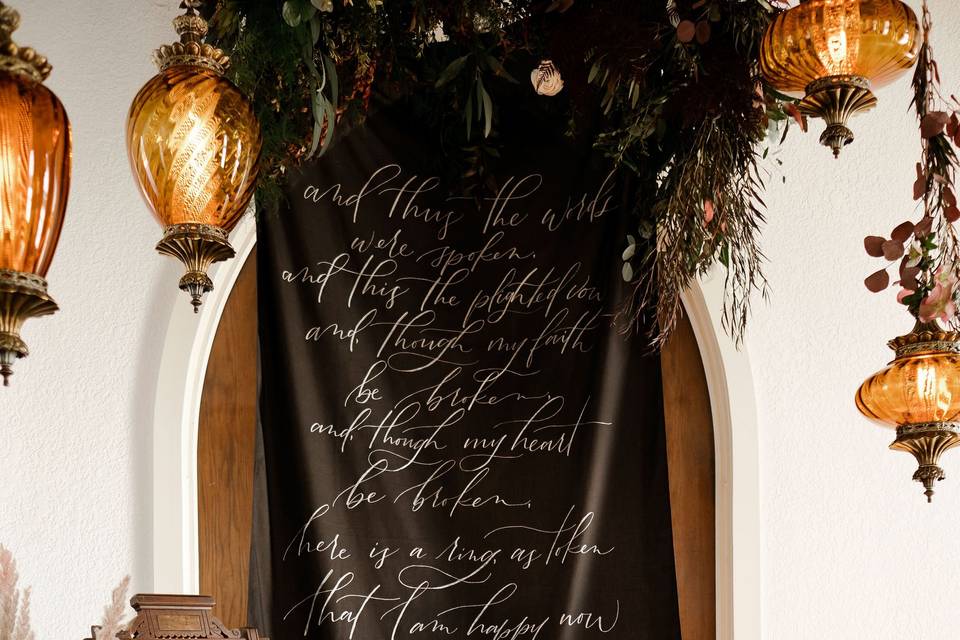 and thus the words
were spoken.
and this the plighted vow
and, though my faith
be broken,
and, though my heart
be broken,
here is a ring, as token
that I am happy now